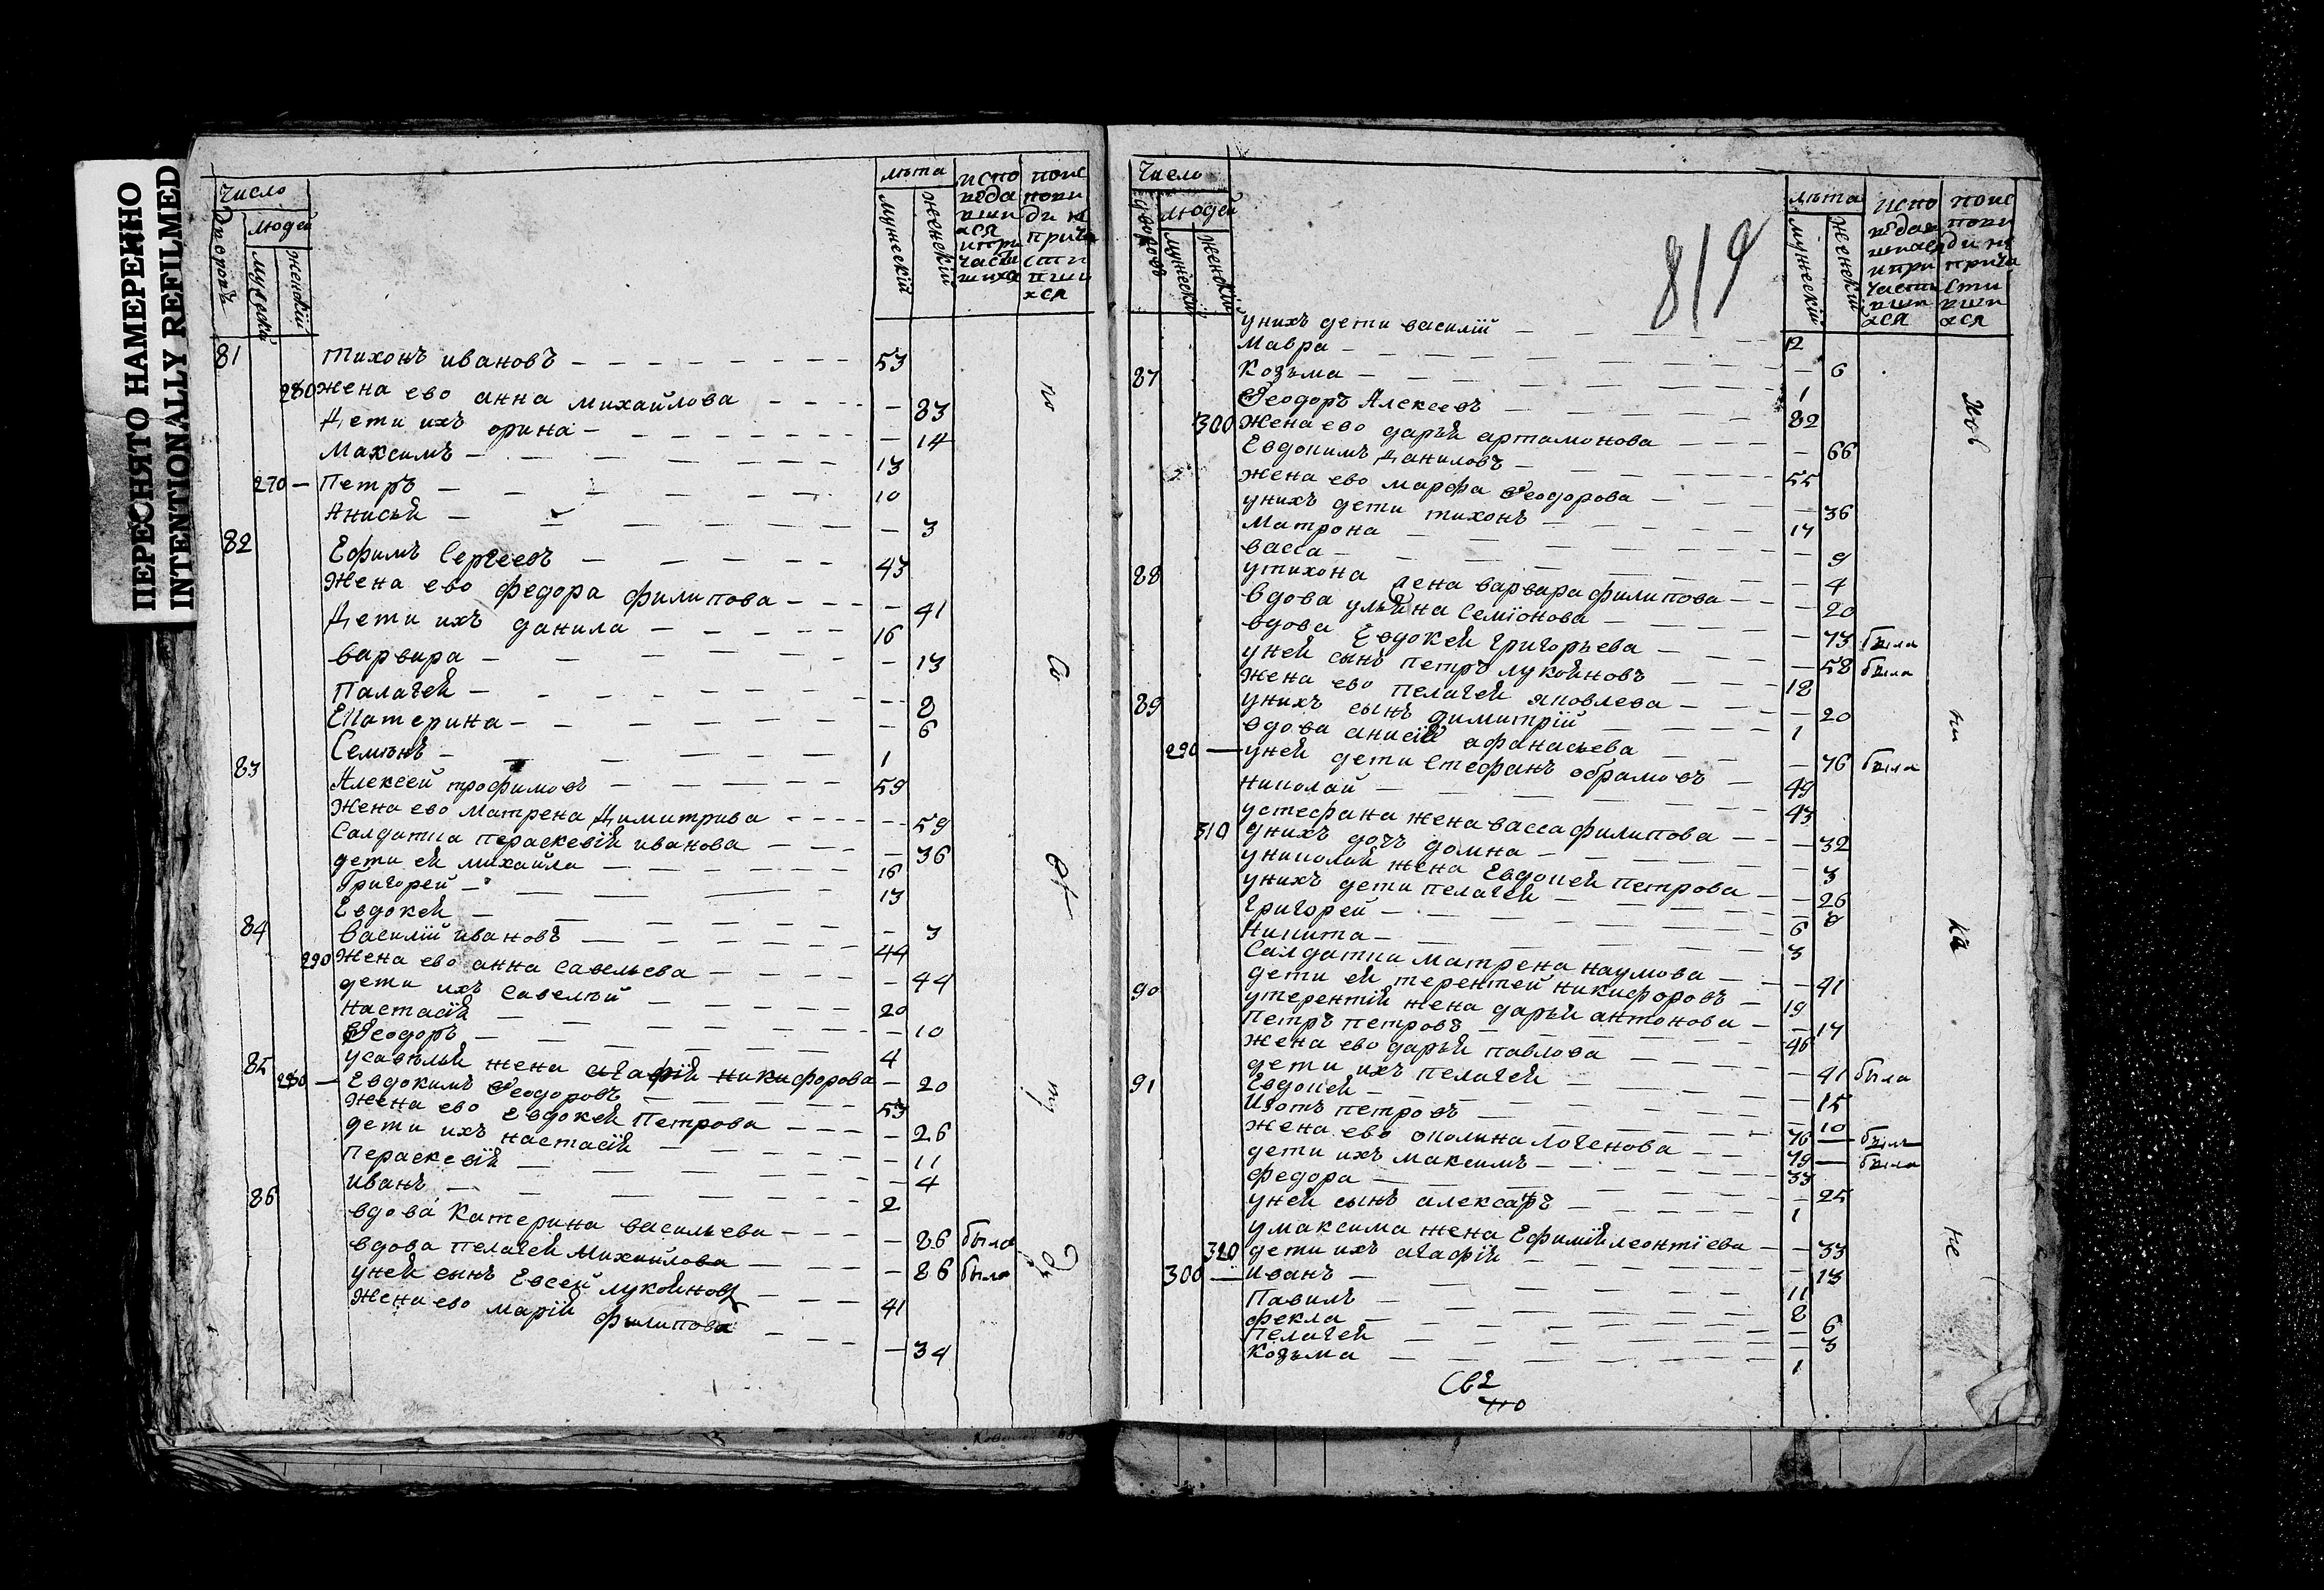 ПЕРЕСНЯТО НАМЕРЕННО
INTENTIONALLY REFILMED
Число
людей
женский
лѣта
мужеский
женский
испо
веда
вши
ася
ипри
части
поис
пови
ди н
прича
сти
вши
хся
81 Тихонъ ивановъ 53
280 жена ево анна михайлова – 83
Дети ихъ орина – 14
Максимъ 13
270 – Петръ 10
Анисья – 3
82 Ефимъ Сергеевъ 43
Жена ево федора филипова – 41
Дети ихъ данила 16
варвара – 13
Палагея – 8
Екатерина – 6
Семионъ 1
83 Алексей трофимовъ 59
жена ево матрена Димитрива – 59
Салдатка пераскевия иванова – 36
дети ея михайла 16
Григорей 13
Евдокея – 3
84 василий ивановъ 44
290 жена ево анна савельева – 44
дети ихъ савелий 20
настасия – 10
Феодоръ 4
усавелья жена агафия никифорова – 20
85 280 – Евдокимъ Феодоровъ 53
жена ево Евдокея Петрова – 26
дети ихъ настасия – 11
пераскевия – 4
иванъ 2
86 вдова Катерина васильева – 86 была
вдова пелагея михайлова – 86 была
уней сынъ Евсей лукояновъ 41
жена ево мария филипова – 34
819
Число
людей
мужеский
женский
лѣта
мужеский
женский
испо
ипри
вши
ася
поис
пови
прича
сти
вши
ася
унихъ дети василий 12
Мавра – 6
Козьма 1
87 Феодоръ Алексеевъ 82
300 жена ево дарья артамонова – 66
Евдокимъ Даниловъ 55
жена ево марфа Феодорова – 36
унихъ дети тихонъ 17
матрона – 9
васса – 4
утихона жена варвара филипова – 20
88 вдова ульяна Семионова – 73 была
вдова Евдокея григорьева – 58 была
уней сынъ петръ лукояновъ 18
жена ево пелагея яковлева – 20
унихъ сынъ димитрий 1
89 вдова анисия афанасьева – 76 была
290 – уней дети Стефанъ абрамовъ 49
николай 43
устефана жена васса филипова – 32
310 унихъ дочь домна – 3
униколая жена Евдокея петрова – 26
унихъ дети пелагея – 8
григорей 6
Никита 3
Салдатка матрена наумова – 41
дети ея терентей никифоровъ 19
утерентия жена дарья антонова – 17
90 петръ петровъ 46
жена ево дарья павлова – 41 была
дети ихъ пелагея – 15
Евдокея – 10
91 Изотъ петровъ 76 – былъ
жена ево акилина логенова 79 – была
дети ихъ максимъ 33
федора – 25
уней сынъ александръ 1
умаксима жена Ефимия леонтиева – 33
320 дети ихъ агафия – 13
300 – иванъ 11
Павилъ 8
фекла – 6
пелагея – 3
козьма 1